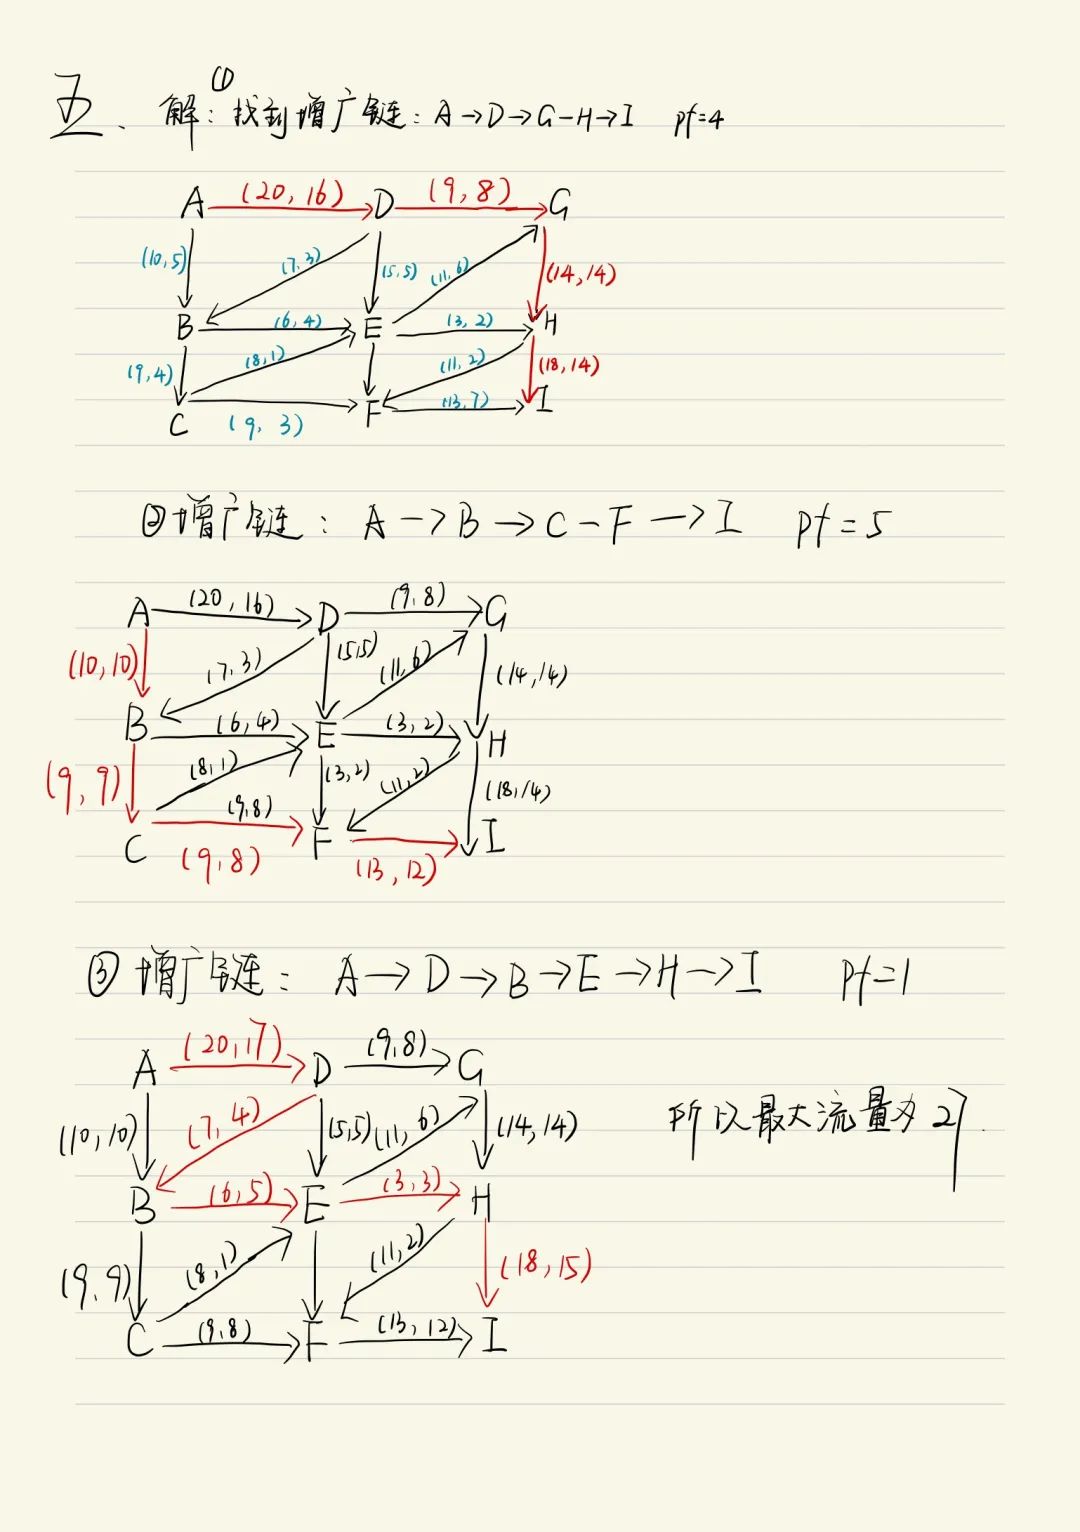 五、解:①找到增广链:A→D→G-H→I pf=4
A (20,16) D (9,8) G
(10,5) (7,3) (5,5) (11,6) (14,14)
B (6,4) E (3,2) H
(9,4) (8,1) (11,2) (18,14)
C (9,3) F (13,7) I
②增广链: A→B→C-F→I pf=5
A (20,16) D (9,8) G
(10,10) (7,3) (5,5) (11,6) (14,14)
B (6,4) E (3,2) H
(9,9) (8,1) (3,2) (11,2) (18,14)
(9,8)
C (9,8) F (13,12) I
③增广链: A→D→B→E→H→I pf=1
A (20,17) D (9,8) G
(10,10) (7,4) (5,5) (11,6) (14,14) 所以最大流量为27.
B (6,5) E (3,3) H
(9,9) (8,1) (11,2) (18,15)
C (9,8) F (13,12) I